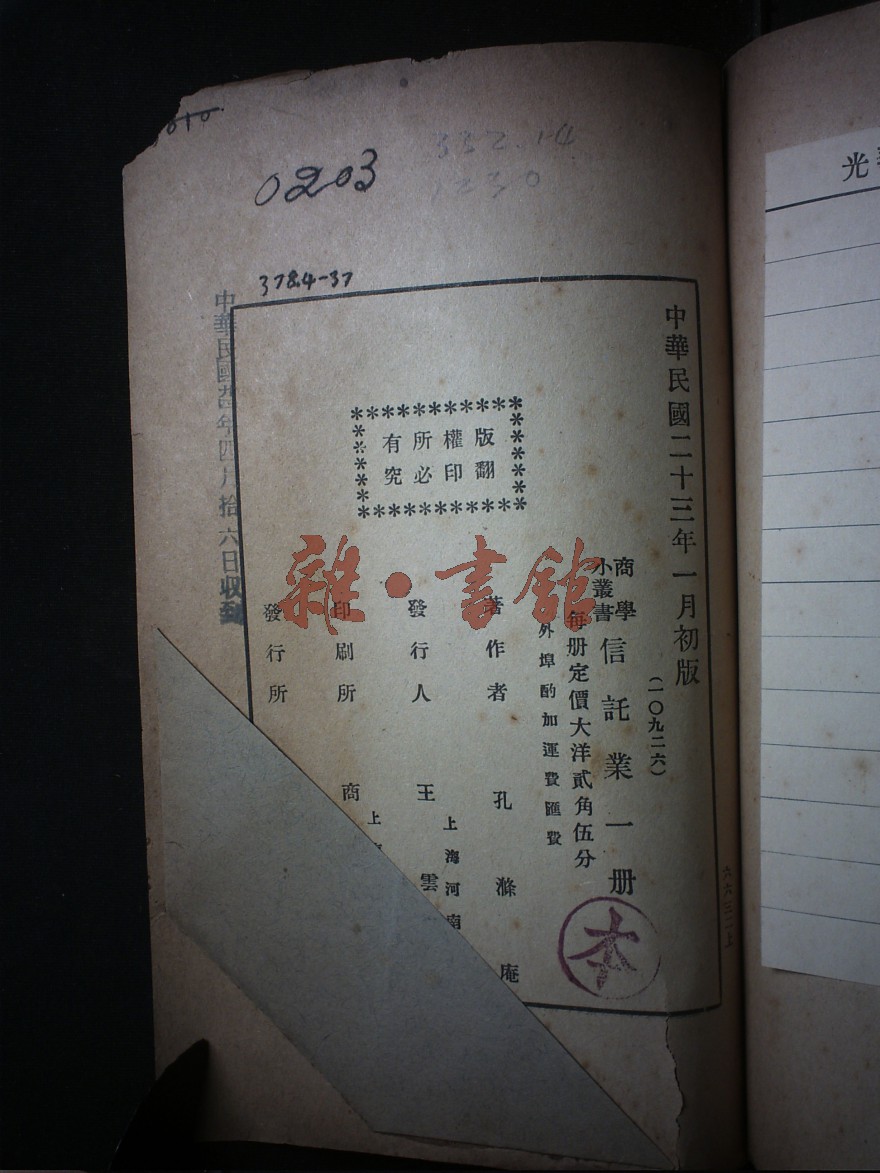 0203
332.14
1230
378.4-37
中華民國二十三年一月初版
(一〇九二六)
商學
小叢書
信託業一册
每册定價大洋貳角伍分
外埠酌加運費匯費
版權所有
翻印必究
著作者 孔滌庵
發行人 王雲
上海河南
印刷所 商
上
發行所
年四月拾六日收到
中華民國
本
雜·書館
光